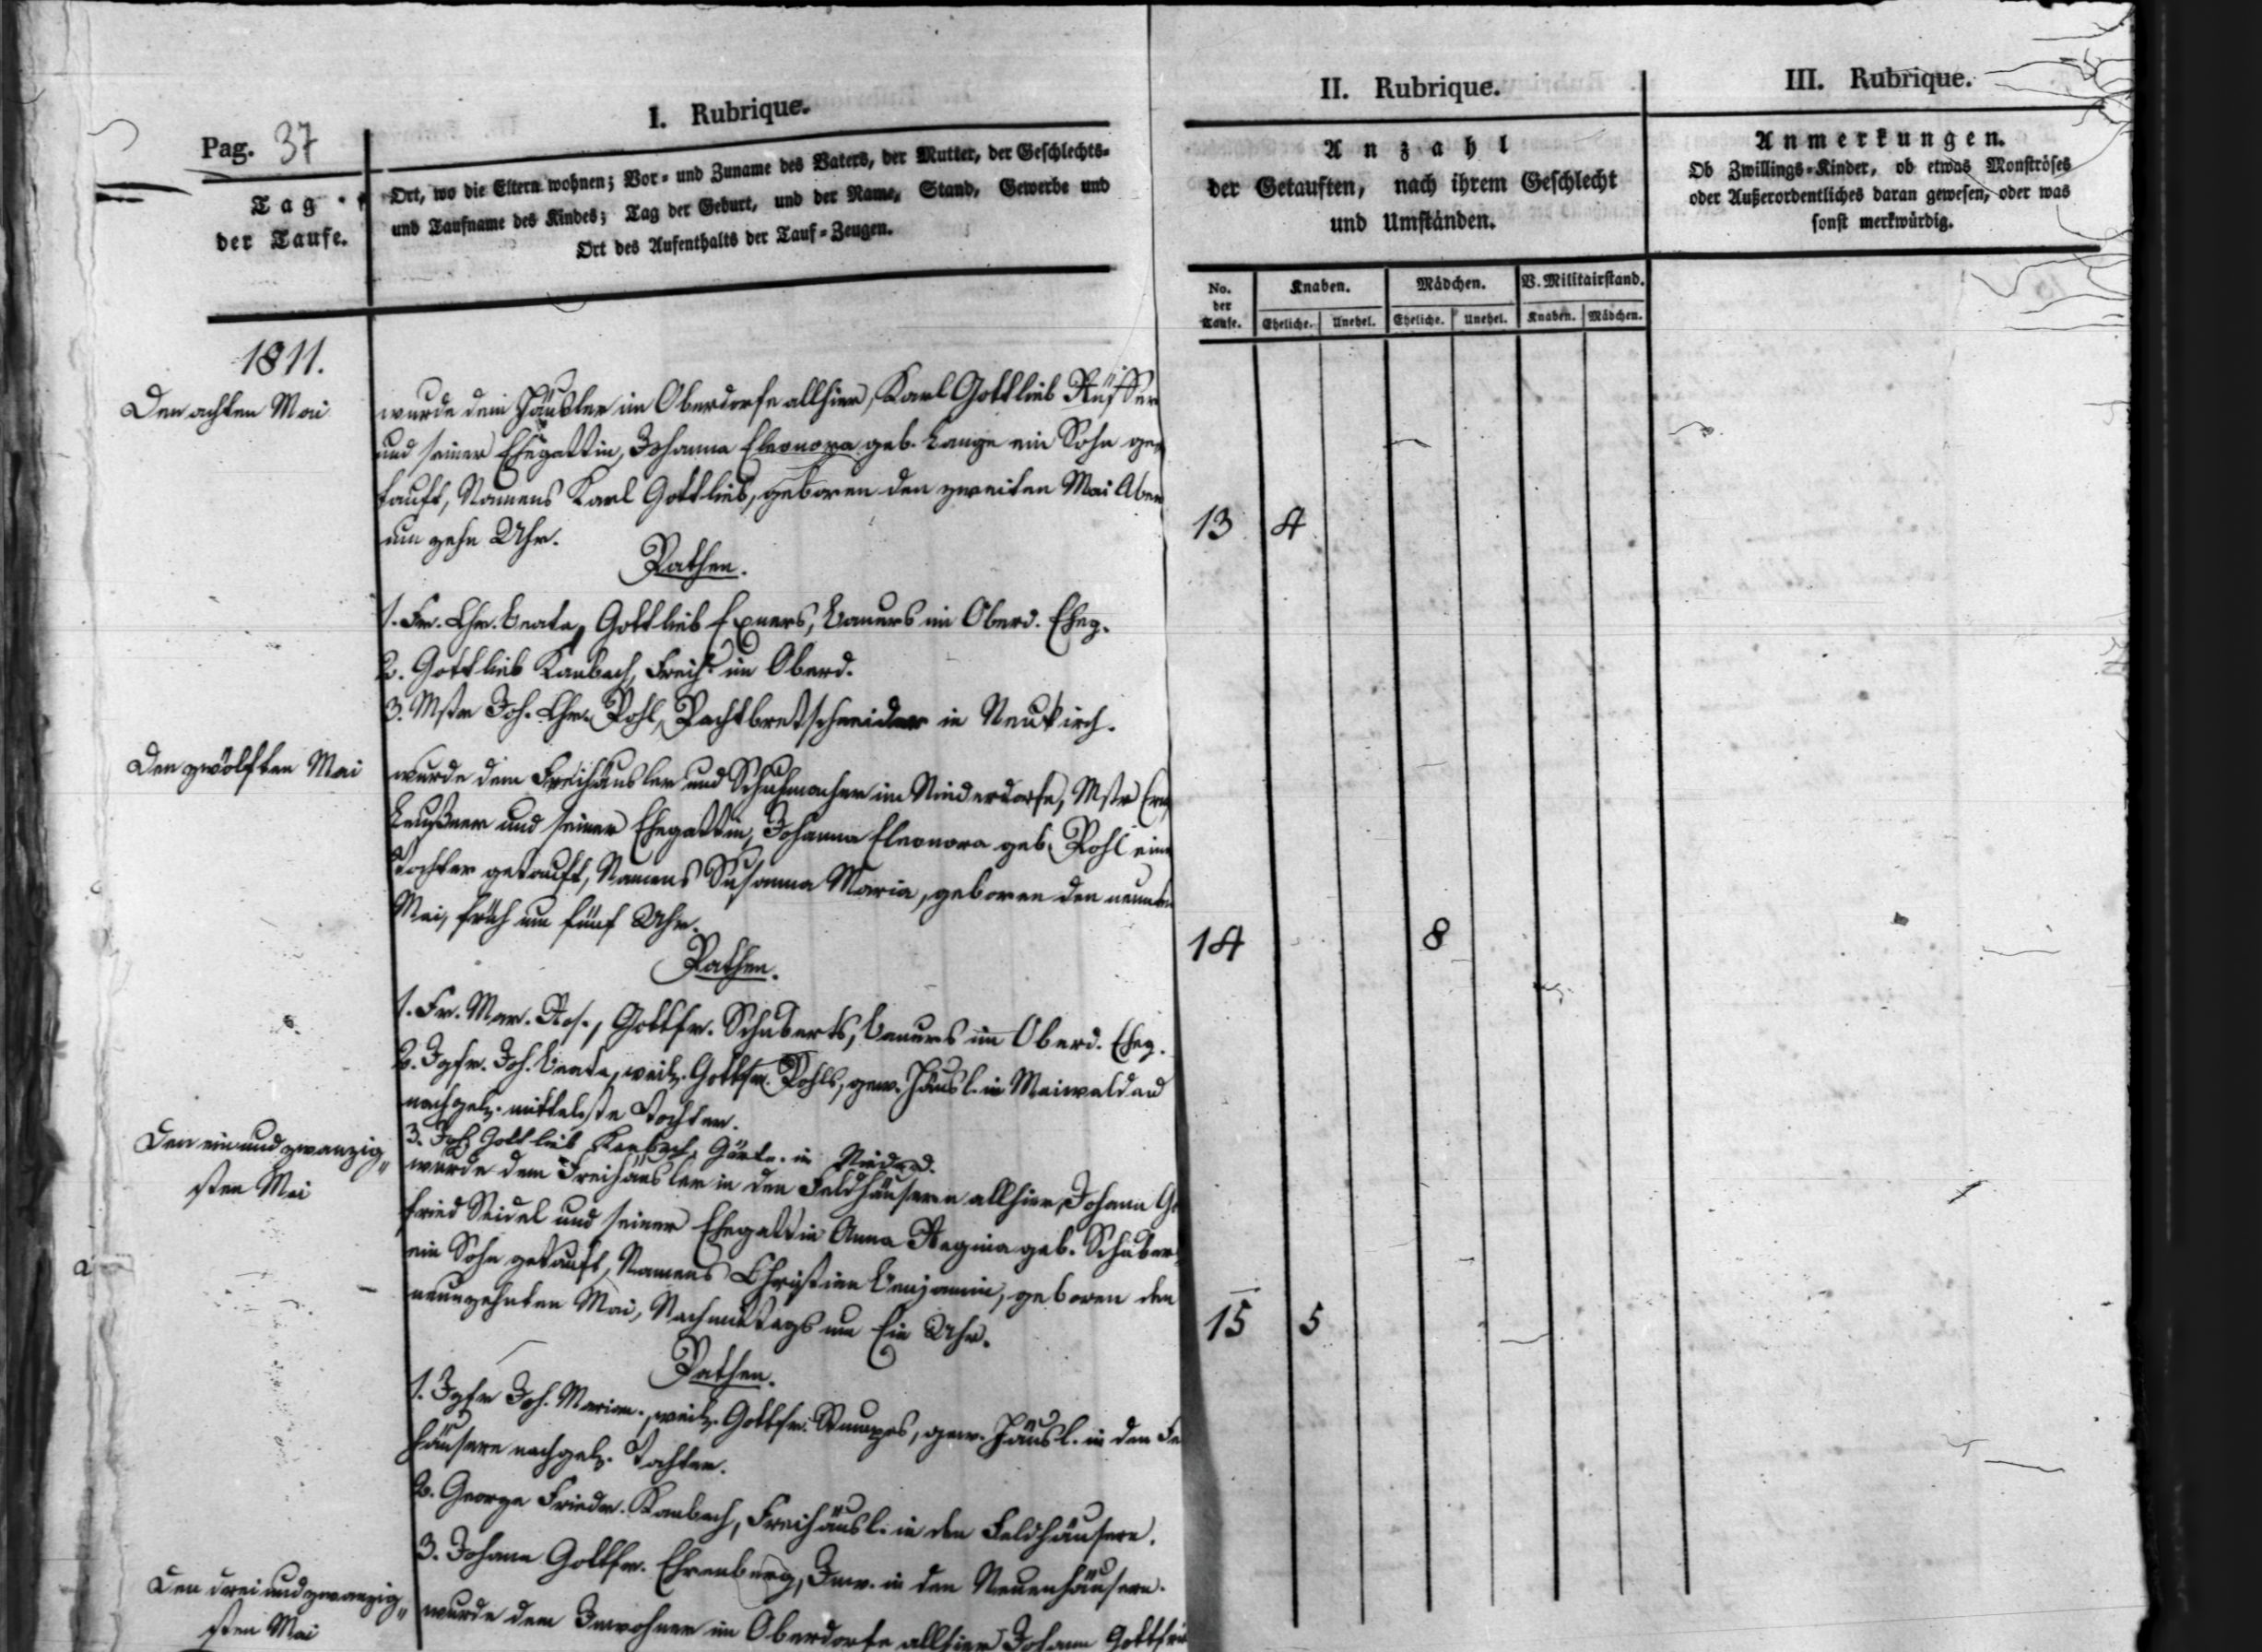 Pag. 37
I. Rubrique.
Tag
der Taufe.
Ort, wo die Eltern wohnen; Vor- und Zuname des Vaters, der Mutter, der Geschlechts-
und Taufname des Kindes; Tag der Geburt, und der Name, Stand, Gewerbe und
Ort des Aufenthalts der Tauf-Zeugen.
II. Rubrique.
Anzahl
der Getauften, nach ihrem Geschlecht
und Umständen.
III. Rubrique.
Anmerkungen.
Ob Zwillings-Kinder, ob etwas Monströses
oder Außerordentliches daran gewesen, oder was
sonst merkwürdig.
No. der Taufe.
Knaben.
Mädchen.
V. Militairstand.
Eheliche. Unehel. Eheliche. Unehel. Knaben. Mädchen.
1811.
Den achten Mai
wurde dem Häusler im Oberdorfe allhier, Karl Gottlieb Rüffer
und seiner Ehegattin, Johanna Eleonora geb. Lange ein Sohn ge-
tauft, Namens Karl Gottlieb, geboren den zweiten Mai Aben
um zehn Uhr.
13 4
Pathen.
1. Fr. Chr. Beata, Gottlieb Exners, Bauers im Oberd. Eheg.
2. Gottlieb Kaubach, Freih. im Oberd.
3. Mstr Joh. Chr. Pohl, Pachtbretschneider in Neukirch.
Den zwölften Mai
wurde dem Freihäusler und Schuhmacher im Niederdorfe, Mstr
und seiner Ehegattin, Johanna Eleonora geb. Pohl eine
Tochter getauft, Namens Susanna Maria, geboren den neunten
Mai, früh um fünf Uhr.
14 8
Pathen.
1. Fr. Mar. Ros., Gottfr. Schuberts, Bauers im Oberd. Eheg.
2. Jgfr. Joh. Beata, weil. Gottfr. Pohls, gew. Häusl. in Maiwaldau
nachgel. mittelste Tochter.
3. Joh. Gottlieb Kaubach, Gärtn. in Niederd.
Den ein und zwanzig„
sten Mai
wurde dem Freihäusler in den Feldhäusern allhier, Johann Go
fried Seidel und seiner Ehegattin Anna Regina geb. Schuber
ein Sohn getauft, Namens Christian Benjamin, geboren den
neunzehnten Mai, Nachmittags um Ein Uhr.
15 5
Pathen.
1. Jgfr Joh. Marian., weil. Gottfr. Stumpes, gew. Häusl. in den Fe
häusern nachgel. Tochter.
2. George Friedr. Kaubach, Freihäusl. in den Feldhäusern.
3. Johann Gottfr. Ehrenberg, Inw. in den Neuenhäusern.
Den drei und zwanzig„
sten Mai
wurde dem Inwohner im Oberdorfe allhier Johann Gottfrie